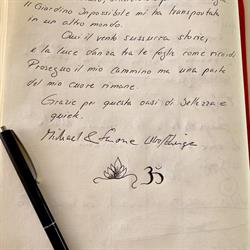 Il Giardino Impossibile mi ha transportata
in un altro mondo.
Qui il vento sussurra storie,
e la luce danza tra le foglie come ricordi
Proseguo il mio cammino ma una parte
del mio cuore rimane.
Grazie per questa oasi di bellezza e
quiete.
Michael & Simone
ॐ